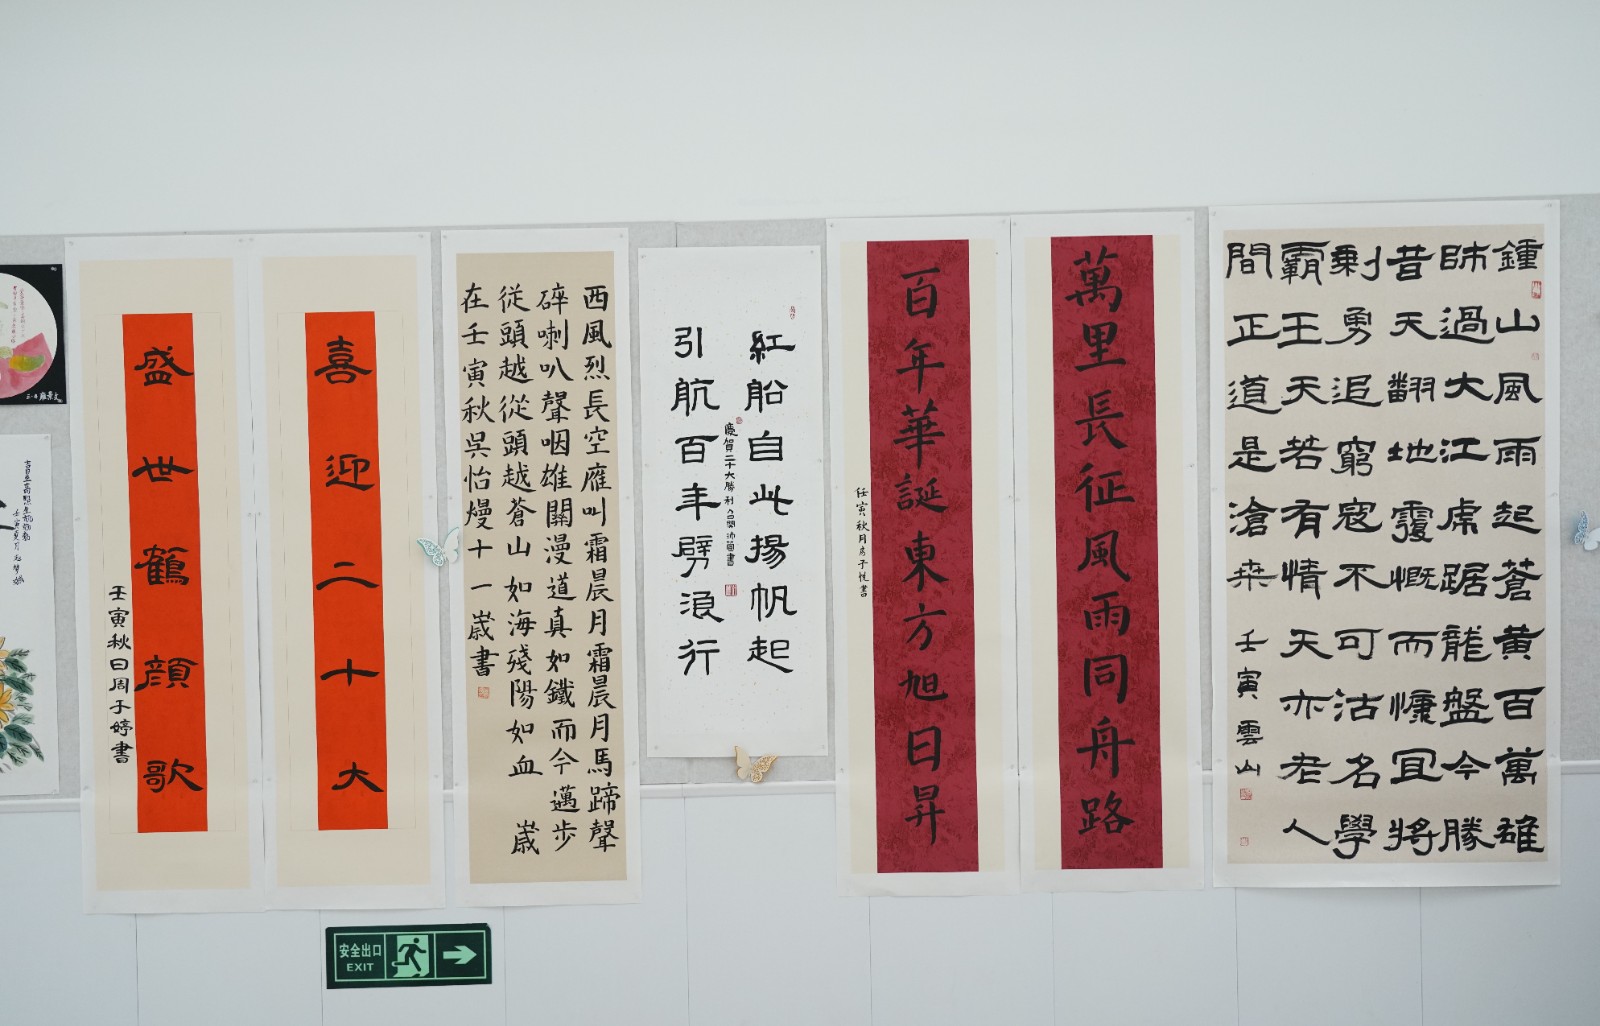 鍾山風雨起蒼黄百萬雄
師過大江虎踞龍盤今勝
昔天翻地覆慨而慷宜將
剩勇追窮寇不可沽名學
霸王天若有情天亦老人
間正道是滄桑 壬寅 雲山
萬里長征風雨同舟路
百年華誕東方旭日昇
任寅秋月 子悦書
紅船自此揚帆起
慶賀二十大勝利召開 書
引航百年劈浪行
西風烈長空應叫霜晨月霜晨月馬蹄聲
碎喇叭聲咽雄關漫道真如鐵而今邁步
從頭越從頭越蒼山如海殘陽如血 歲
在壬寅秋吳怡熳十一歲書
喜迎二十大
盛世鶴顔歌
壬寅秋日周子婷書
安全出口
EXIT